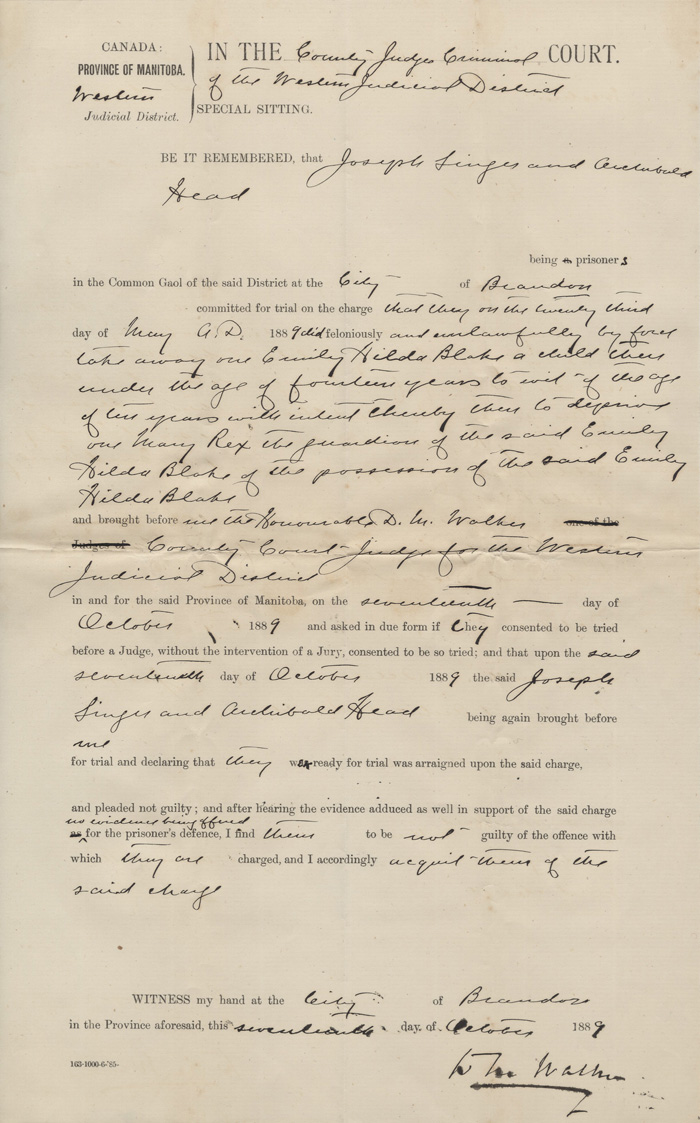 CANADA:
PROVINCE OF MANITOBA.
Western
Judicial District.
IN THE County Judges Criminal COURT.
of the Western Judicial District
SPECIAL SITTING.
BE IT REMEMBERED, that Joseph Singer and Archibald
Head
being a prisoners
in the Common Gaol of the said District at the City of Brandon
committed for trial on the charge that they on the twenty third
day of May A.D. 1889 did feloniously and unlawfully by force
take away one Emily Hilda Blake a child then
under the age of fourteen years to wit of the age
of ten years with intent thereby then to deprive
one Mary Rex the guardian of the said Emily
Hilda Blake of the possession of the said Emily
Hilda Blake
and brought before me the Honourable D. M. Walker one of the
Judges of County Court Judge for the Western
Judicial District
in and for the said Province of Manitoba, on the seventeenth day of
October 1889 and asked in due form if they consented to be tried
before a Judge, without the intervention of a Jury, consented to be so tried; and that upon the said
seventeenth day of October 1889 the said Joseph
Singer and Archibald Head being again brought before
me
for trial and declaring that they were ready for trial was arraigned upon the said charge,
and pleaded not guilty; and after hearing the evidence adduced as well in support of the said charge
no evidence being offered
as for the prisoner's defence, I find them to be not guilty of the offence with
which they are charged, and I accordingly acquit them of the
said charge
WITNESS my hand at the City of Brandon
in the Province aforesaid, this seventeenth day of October 1889
D M Walker
163-1000-6-'85-